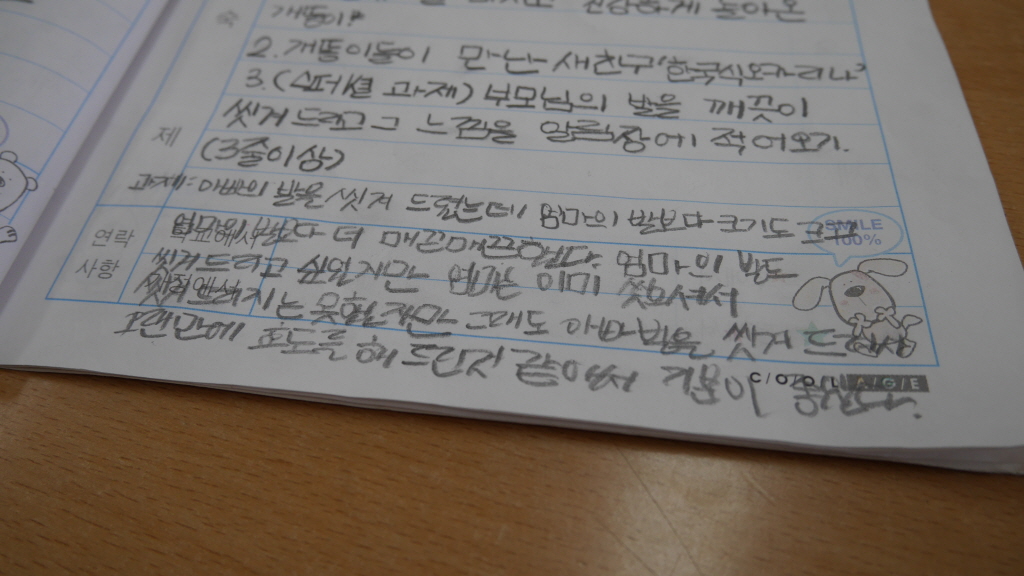 건강하게 놀아온
숙 개똥이*
2. 개똥이들이 만난 새친구'한국식오카리나'
3. (스페셜 과제) 부모님의 발을 깨끗이
제 씻겨드리고 그 느낌을 알림장에 적어오기.
(3줄이상)
과제: 아빠의 발을 씻겨 드렸는데 엄마의 발보다 크기도 크고
연락 엄마의 발보다 더 매끈매끈했다. 엄마의 발도
사항 씻겨드리고 싶었지만 엄마는 이미 씻으셔서
씻겨드리지는 못했지만 그래도 아빠발을 씻겨 드려서
오랜만에 효도를 해 드린것 같아서 기분이 좋았다.
SMILE
100%
COOL AGE